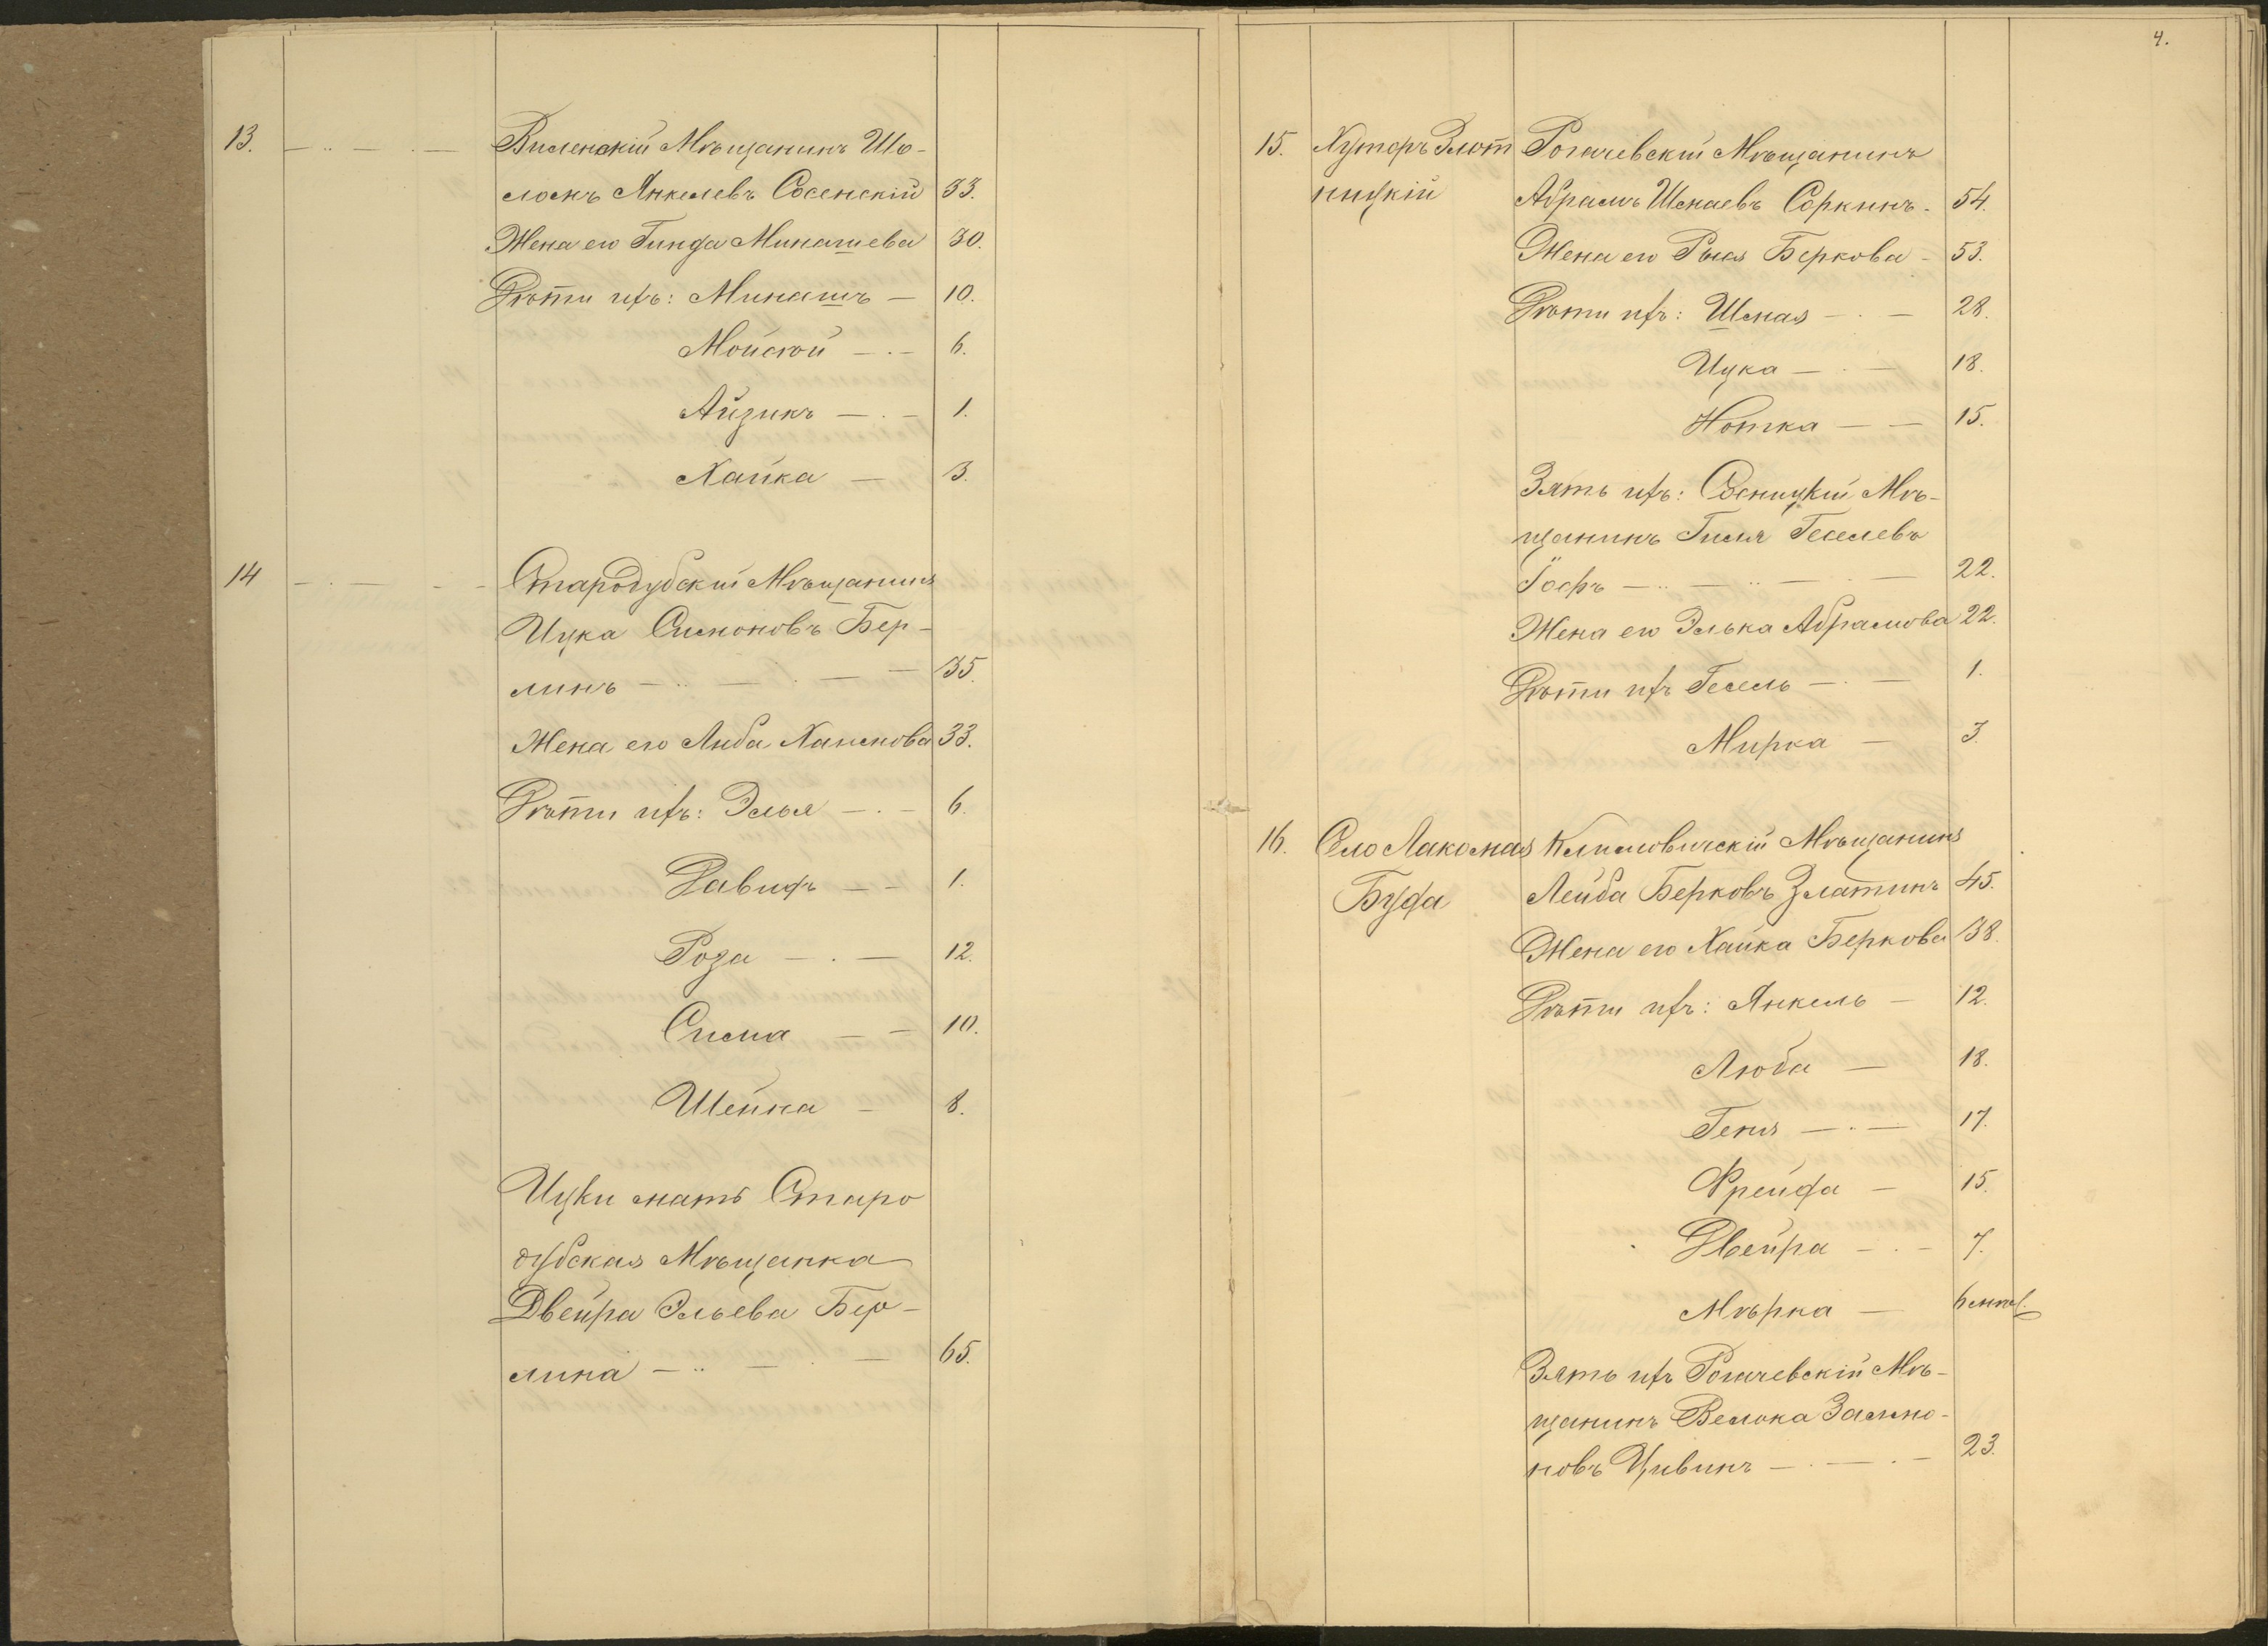 13. Виленскій Мѣщанинъ Шо-
ломъ Янкелевъ Сосенскій 33.
Жена его Гинда Минашева 30.
Дѣти ихъ: Минашъ — 10.
Мойсей — 6.
Айзикъ — 1.
Хайка — 3.
14 Стародубскій Мѣщанинъ
Ицка Симоновъ Бер-
линъ — 35.
Жена его Люба Хаимова 33.
Дѣти ихъ: Элья — 6.
Давидъ — 1.
Роза — 12.
Сима — 10.
Шейна — 8.
Ицки мать Старо
дубская Мѣщанка
Двейра Эльева Бер-
лина — 65.
4.
15. Хуторъ Злот Рогачевскій Мѣщанинъ
ницкій Абрамъ Шмаевъ Соркинъ. 54.
Жена его Рыся Беркова - 53.
Дѣти ихъ: Шмая — 28.
Ицка — 18.
Нотка — 15.
Зять ихъ: Сосницкій Мѣ-
щанинъ Гиля Геселевъ
Іофъ — 22.
Жена его Элька Абрамова 22.
Дѣти ихъ Гесель — 1.
Мирка — 3.
16. Село Лакомая Климовичскій Мѣщанинъ
Буда Лейба Берковъ Златинъ 45.
Жена его Хайка Беркова 38.
Дѣти ихъ: Янкель — 12.
Люба — 18.
Геня — 17.
Фрейда — 15.
Двейра — 7.
Мѣрка — 6 мѣс.
Зять ихъ Рогачевскій Мѣ-
щанинъ Велька Залмо-
новъ Цивинъ — 23.